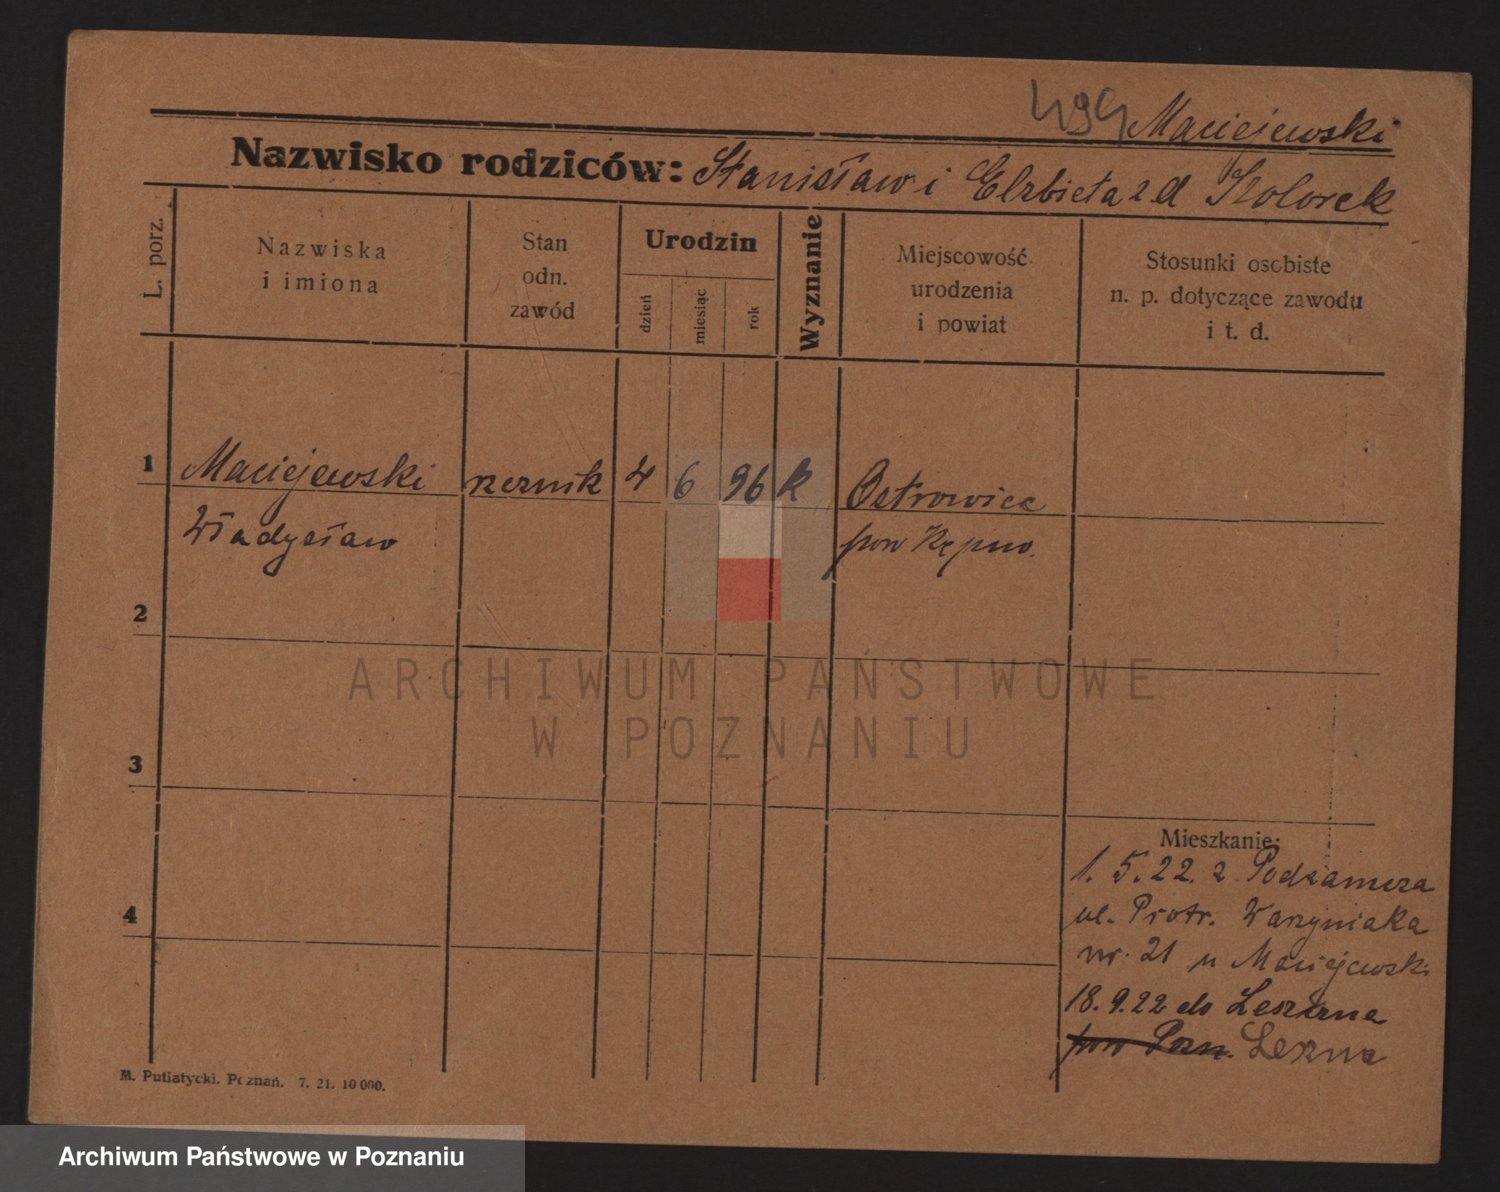 499 Maciejewski
Nazwisko rodziców: Stanisław i Elżbieta z d
L. porz.
Nazwiska
i imiona
Stan
odn.
zawód
Urodzin
dzień
miesiąc
rok
Wyznanie
Miejscowość
urodzenia
i powiat
Stosunki osobiste
n. p. dotyczące zawodu
i t. d.
1 Maciejewski rzeznik 4 6 96 k Ostrowiec
Władysław pow Kępno.
2
3
4
Mieszkanie:
1. 5. 22. z Podzamcza
ul. Piotr. Wawrzyniaka
nr. 21 u Maciejewski
18. 9. 22 do
pow Pozn.
M. Putiatycki. Poznań. 7. 21. 10 000.
ARCHIWUM PAŃSTWOWE
W POZNANIU
Archiwum Państwowe w Poznaniu